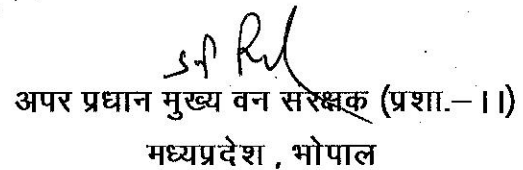 अपर प्रधान मुख्य वन संरक्षक (प्रशा.–।।)
मध्यप्रदेश , भोपाल